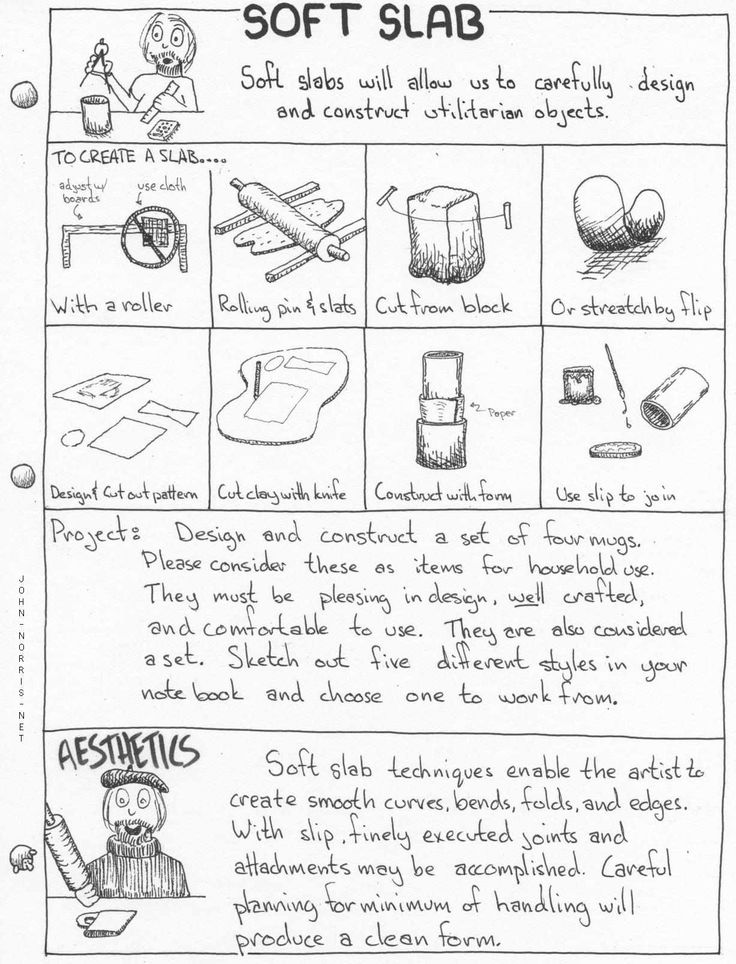 SOFT SLAB
Soft slabs will allow us to carefully design
and construct utilitarian objects.
TO CREATE A SLAB....
adjust w/
boards
use cloth
With a roller
Rolling pin & slats
Cut from block
Or streatch by flip
Paper
Design & Cut out pattern
Cut clay with knife
Construct with form
Use slip to join
Project: Design and construct a set of four mugs.
Please consider these as items for household use.
They must be pleasing in design, well crafted,
and comfortable to use. They are also considered
a set. Sketch out five different styles in your
note book and choose one to work from.
JOHN-NORRIS-NET
AESTHETICS
Soft slab techniques enable the artist to
create smooth curves, bends, folds, and edges.
With slip, finely executed joints and
attachments may be accomplished. Careful
planning for minimum of handling will
produce a clean form.